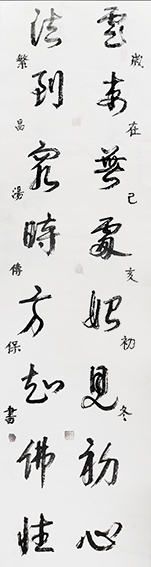 歲在己亥初冬
無處始見初心
法到窮時方知佛性
繁昌湯傳保書